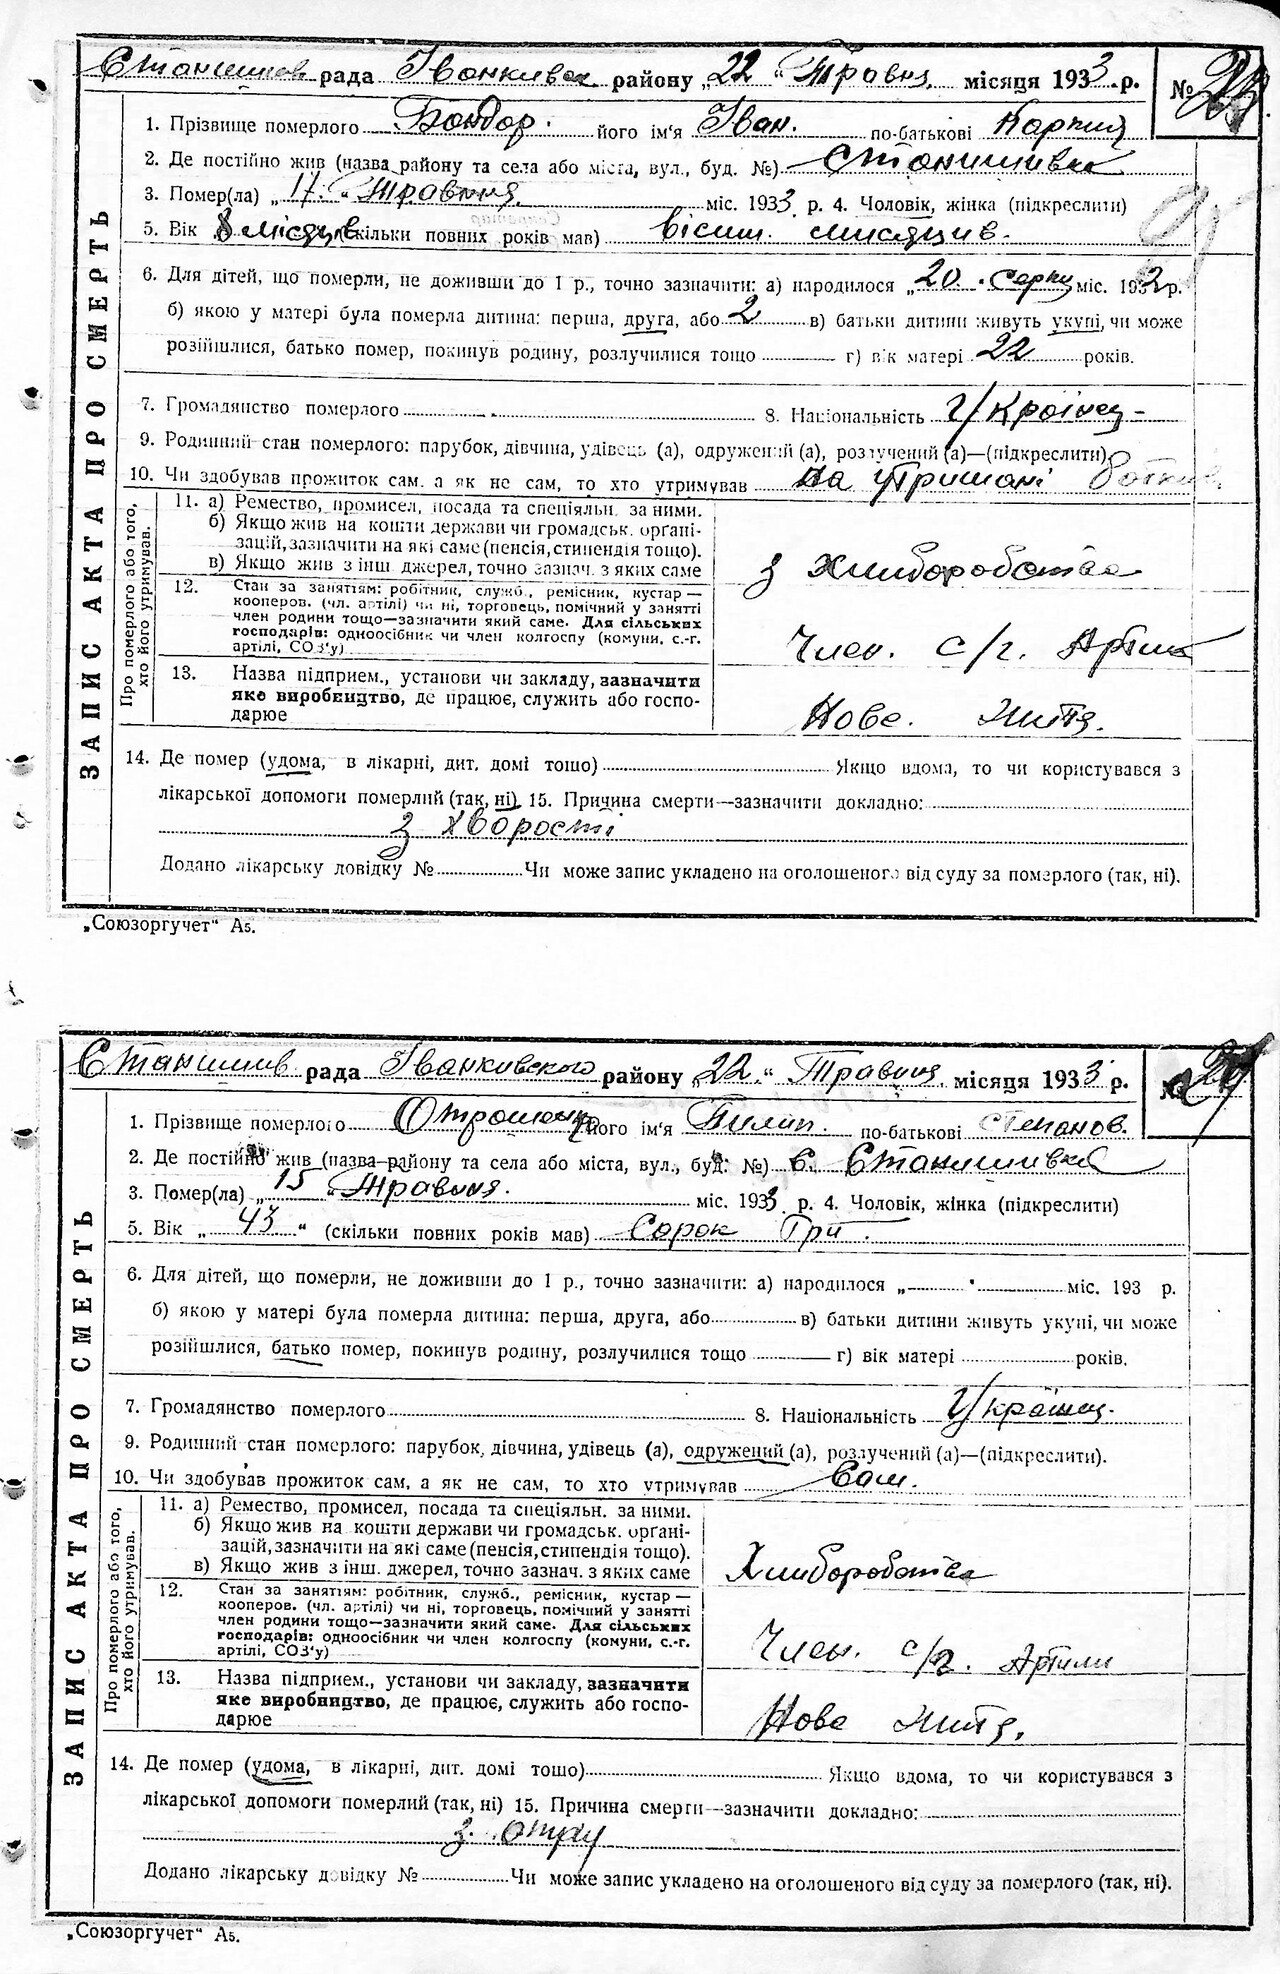 Станишив рада Іванкивск району „22“ Травня місяця 1933 р. №
1. Прізвище померлого Бондор його ім'я Іван. по-батькові
2. Де постійно жив (назва району та села або міста, вул., буд. №) Станишивка
3. Помер(ла) „11“ Травня міс. 1933 р. 4. Чоловік, жінка (підкреслити)
5. Вік 8 місяцив (скільки повних років мав) вісим. мисяцив.
6. Для дітей, що померли, не доживши до 1 р., точно зазначити: а) народилося „20“ серпн міс. 1932 р.
б) якою у матері була померла дитина: перша, друга, або 2 в) батьки дитини живуть укупі, чи може
розійшлися, батько помер, покинув родину, розлучилися тощо г) вік матері 22 років.
7. Громадянство померлого - 8. Національність Українец-
9. Родинний стан померлого: парубок, дівчина, удівець (а), одружений (а), розлучений (а)—(підкреслити)
10. Чи здобував прожиток сам, а як не сам, то хто утримував на утримані
ЗАПИС АКТА ПРО СМЕРТЬ
Про померлого або того, хто його утримував.
11. а) Ремество, промисел, посада та спеціяльн. за ними.
б) Якщо жив на кошти держави чи громадськ. органі-
зацій, зазначити на які саме (пенсія, стипендія тощо).
в) Якщо жив з інш. джерел, точно зазнач. з яких саме
з Хлиборобства
12. Стан за занятіям: робітник, служб., ремісник, кустар—
кооперов. (чл. артілі) чи ні, торговець, помічний у занятті
член родини тощо—зазначити який саме. Для сільських
господарів: одноосібник чи член колгоспу (комуни, с.-г.
артілі, СОЗ'у)
Член. с/г. Артили
13. Назва підприєм., установи чи закладу, зазначити
яке виробництво, де працює, служить або госпо-
дарює
Нове. Життя.
14. Де помер (удома, в лікарні, дит. домі тощо) Якщо вдома, то чи користувався з
лікарської допомоги померлий (так, ні) 15. Причина смерти—зазначити докладно:
з хворості
Додано лікарську довідку № Чи може запис укладено на оголошеного від суду за померлого (так, ні).
„Союзоргучет“ А5.
Станишив рада Іванкивского району „22“ Травня місяця 1933 р.
1. Прізвище померлого його ім'я Пилип. по-батькові степанов.
2. Де постійно жив (назва району та села або міста, вул., буд. №) с. Станишивка
3. Помер(ла) „15“ Травня. міс. 1933 р. 4. Чоловік, жінка (підкреслити)
5. Вік „43“ (скільки повних років мав) Сорок Три.
6. Для дітей, що померли, не доживши до 1 р., точно зазначити: а) народилося „ “ міс. 193 р.
б) якою у матері була померла дитина: перша, друга, або в) батьки дитини живуть укупі, чи може
розійшлися, батько помер, покинув родину, розлучилися тощо г) вік матері років.
7. Громадянство померлого 8. Національність Українец.
9. Родинний стан померлого: парубок, дівчина, удівець (а), одружений (а), розлучений (а)—(підкреслити).
10. Чи здобував прожиток сам, а як не сам, то хто утримував Сам.
ЗАПИС АКТА ПРО СМЕРТЬ
Про померлого або того, хто його утримував.
11. а) Ремество, промисел, посада та спеціяльн. за ними.
б) Якщо жив на кошти держави чи громадськ. органі-
зацій, зазначити на які саме (пенсія, стипендія тощо).
в) Якщо жив з інш. джерел, точно зазнач. з яких саме
Хлиборобства
12. Стан за занятіям: робітник, служб., ремісник, кустар—
кооперов. (чл. артілі) чи ні, торговець, помічний у занятті
член родини тощо—зазначити який саме. Для сільських
господарів: одноосібник чи член колгоспу (комуни, с.-г.
артілі, СОЗ'у)
Член. с/г. Артили
13. Назва підприєм., установи чи закладу, зазначити
яке виробництво, де працює, служить або госпо-
дарює
Нове Життя.
14. Де помер (удома, в лікарні, дит. домі тощо) Якщо вдома, то чи користувався з
лікарської допомоги померлий (так, ні) 15. Причина смерти—зазначити докладно:
з.
Додано лікарську довідку № Чи може запис укладено на оголошеного від суду за померлого (так, ні).
„Союзоргучет“ А5.